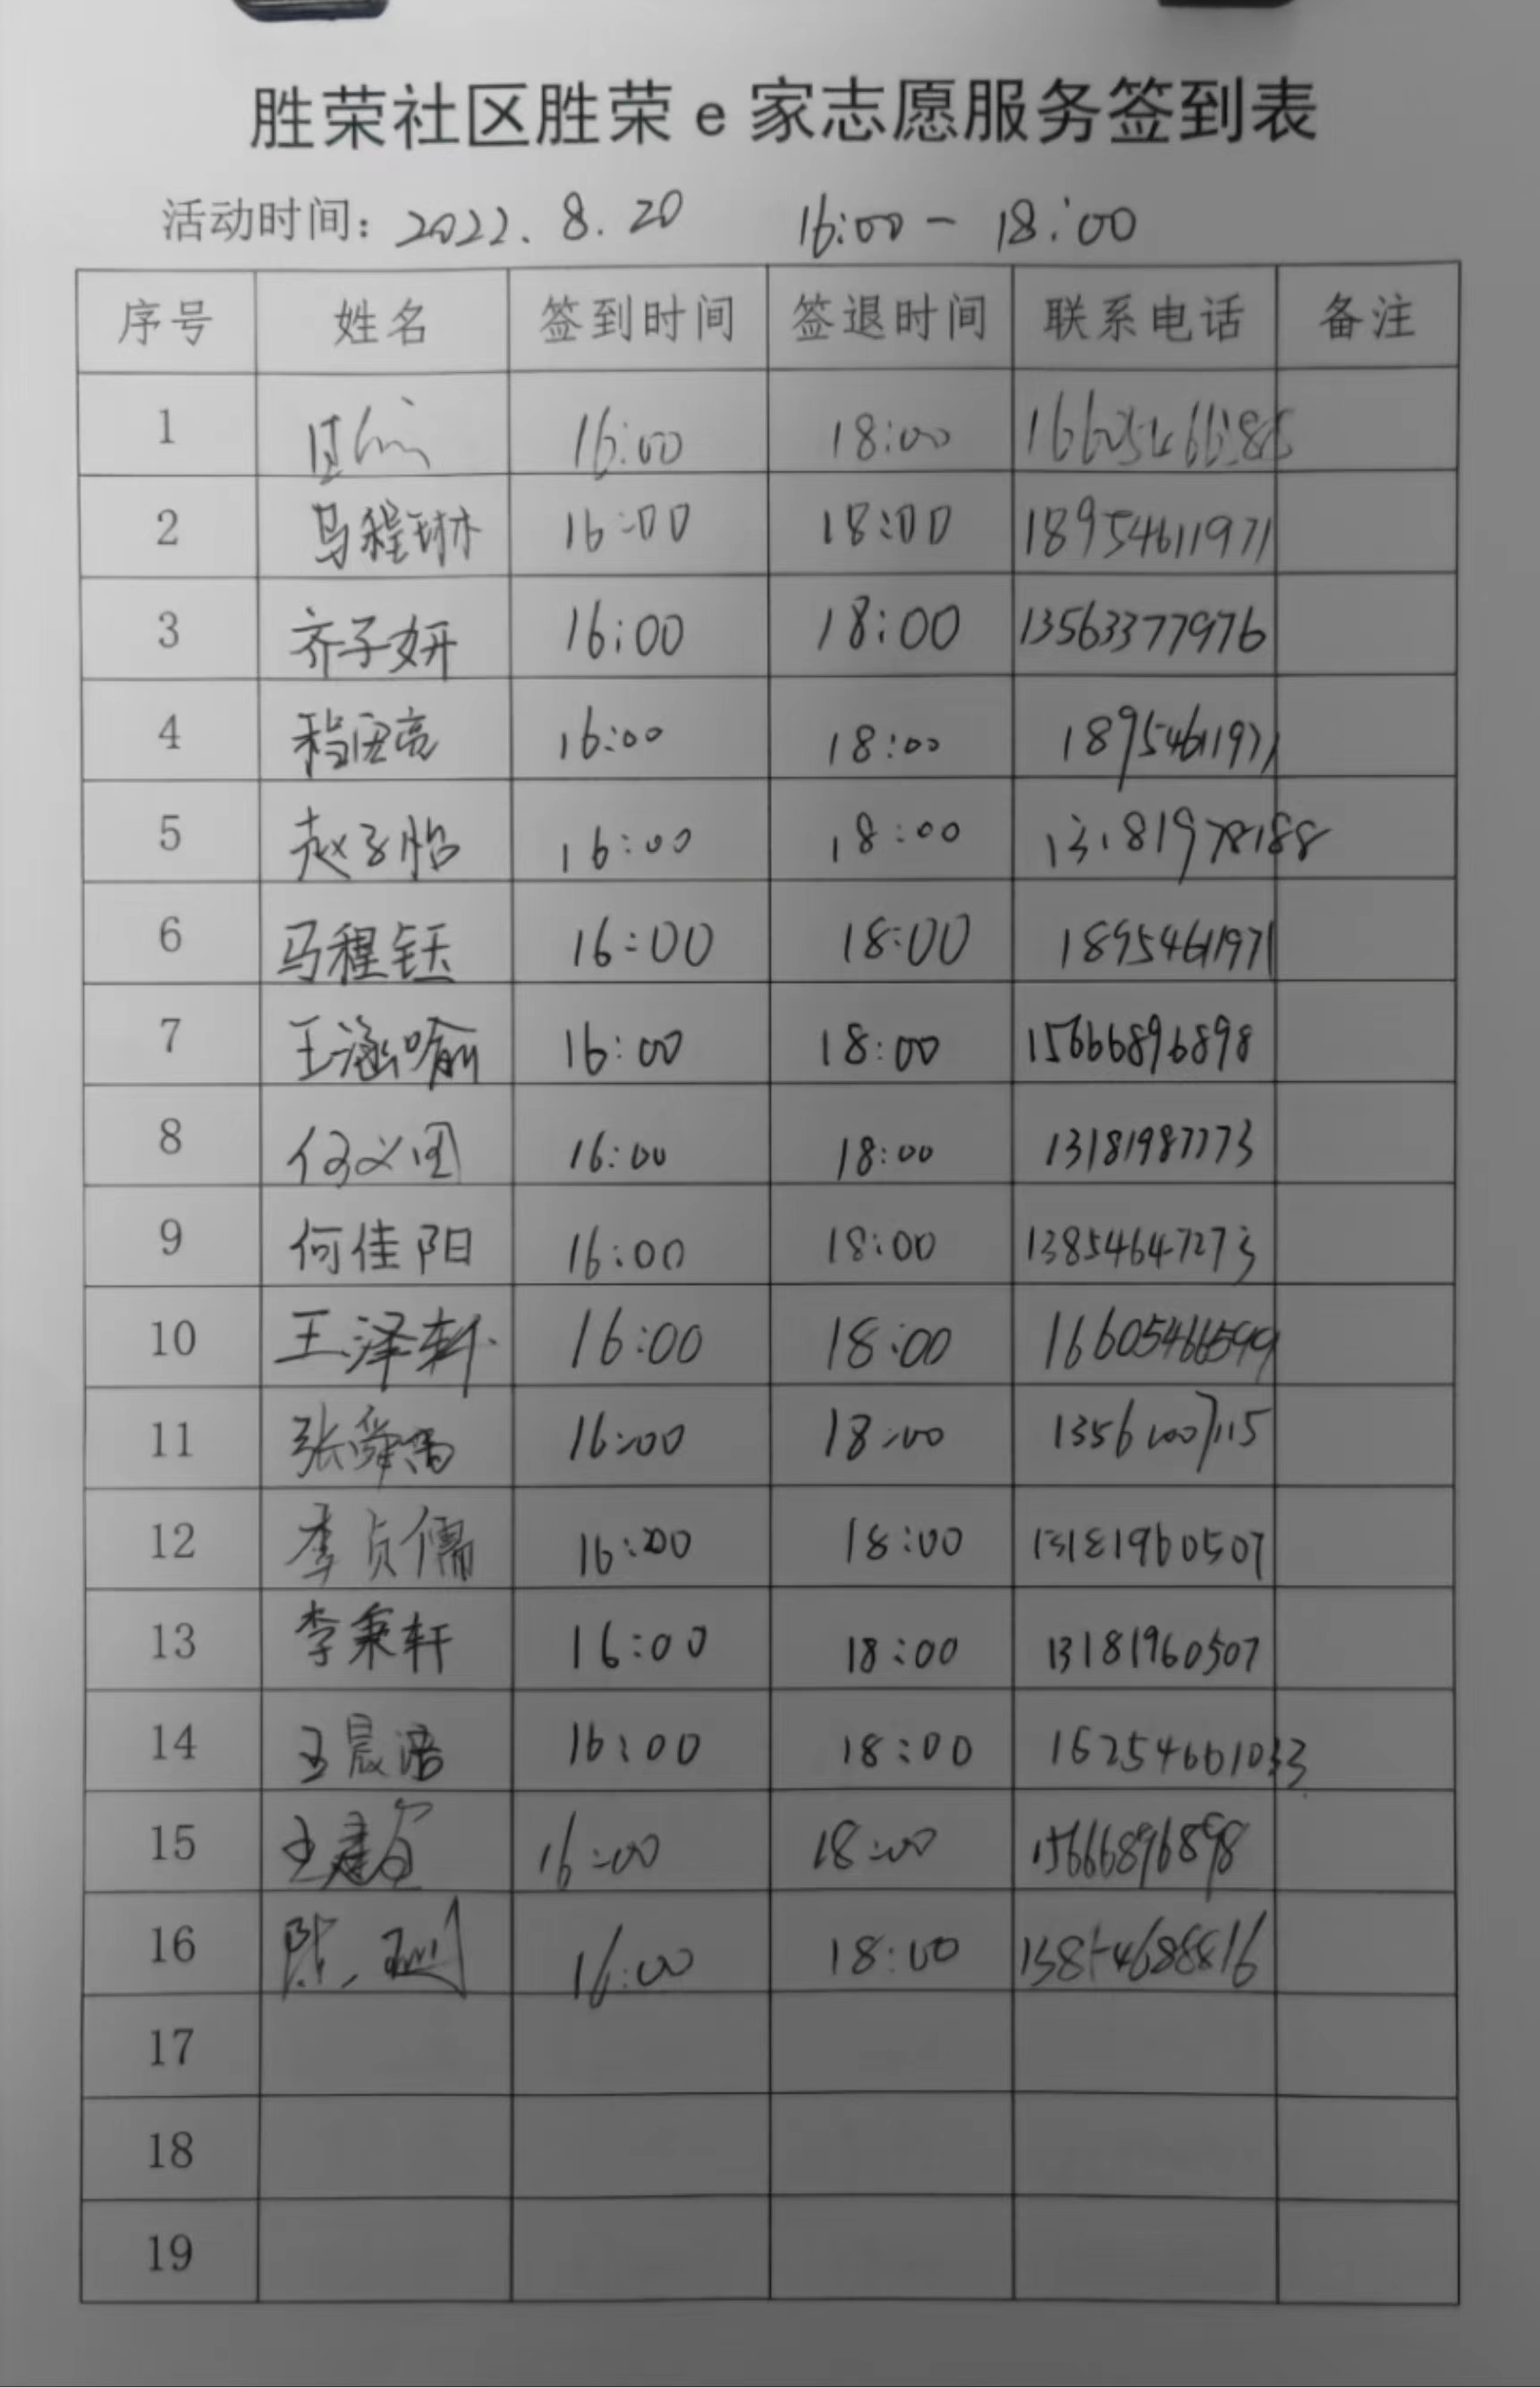 胜荣社区胜荣e家志愿服务签到表
活动时间：2022.8.20 16:00-18:00
序号 姓名 签到时间 签退时间 联系电话 备注
1 16:00 18:00
2 马程琳 16:00 18:00 18954611971
3 齐子妍 16:00 18:00 13563377976
4 16:00 18:00 18954611971
5 赵子怡 16:00 18:00 13181978188
6 马程钰 16:00 18:00 18954611971
7 王涵喻 16:00 18:00 15666896898
8 16:00 18:00 13181987773
9 何佳阳 16:00 18:00 13854647273
10 王泽轩 16:00 18:00 16605466599
11 16:00 18:00 13561007115
12 李贞儒 16:00 18:00 13181960507
13 李秉轩 16:00 18:00 13181960507
14 王晨浩 16:00 18:00 16254661033
15 16:00 18:00 15666896898
16 16:00 18:00 13854688816
17
18
19